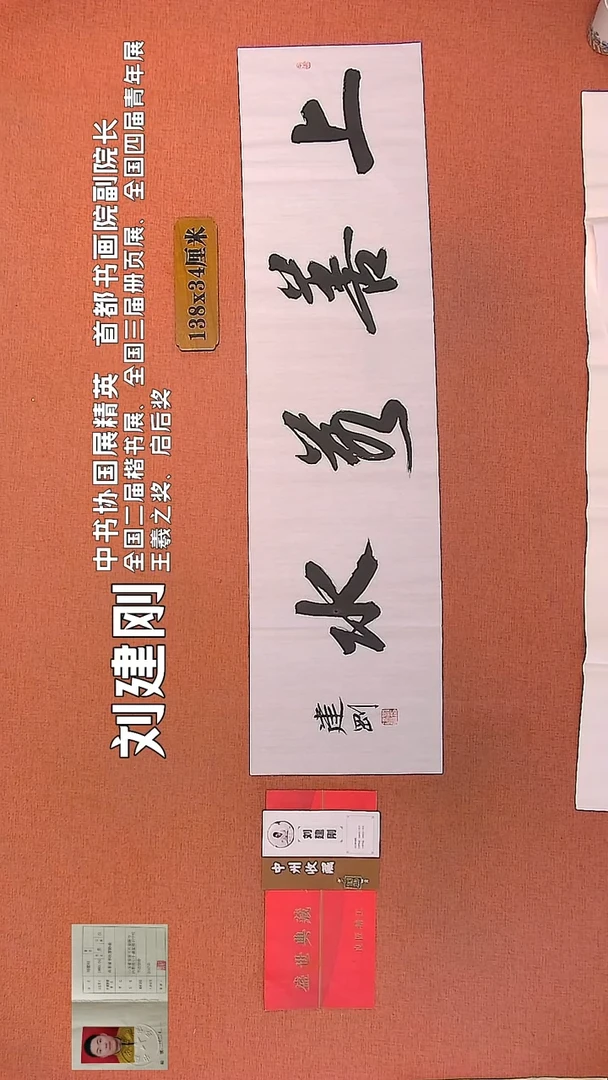 刘建刚
中书协国展精英 首都书画院副院长
全国二届楷书展、全国三届册页展、全国四届青年展
王羲之奖、启后奖
138x34厘米
上善若水
建剛
刘建刚
中州收藏
盛世典藏